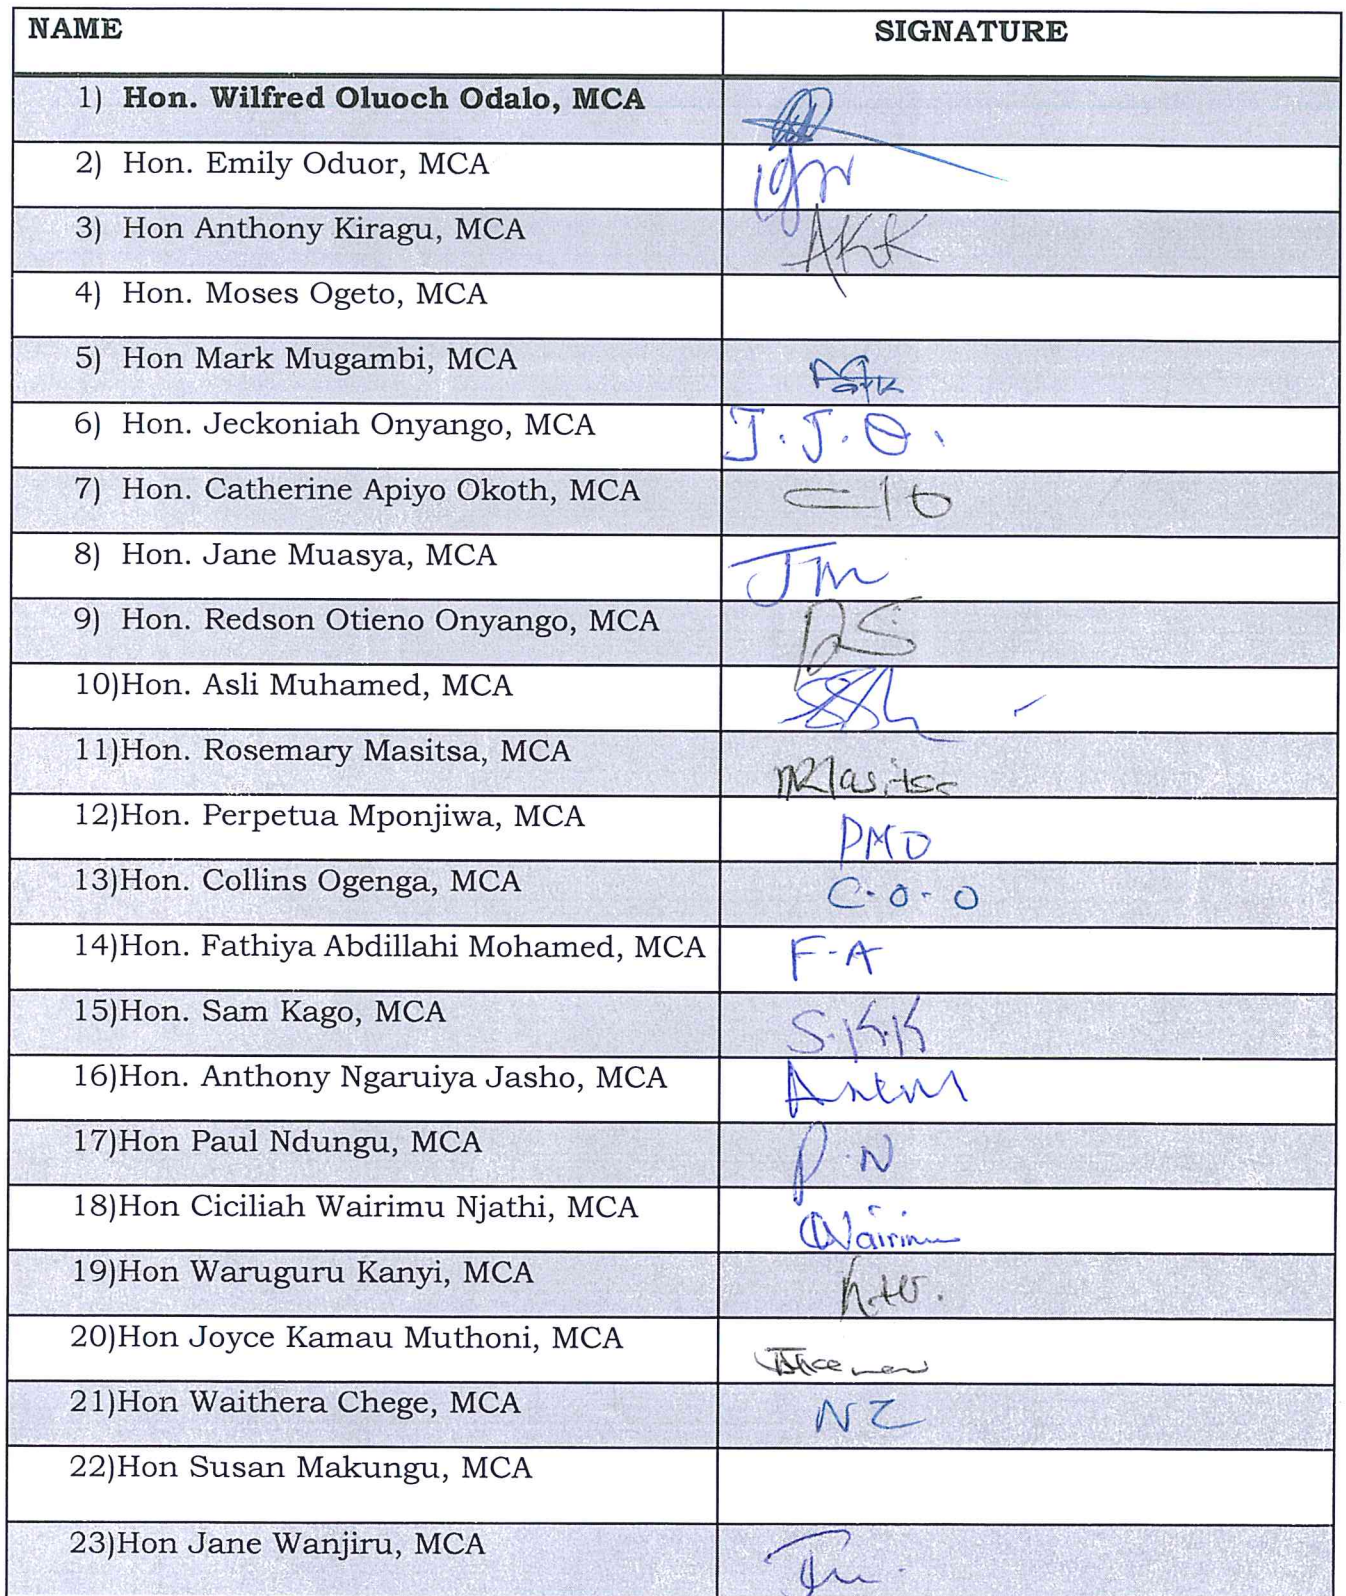 NAME SIGNATURE
1) Hon. Wilfred Oluoch Odalo, MCA
2) Hon. Emily Oduor, MCA
3) Hon Anthony Kiragu, MCA AKK
4) Hon. Moses Ogeto, MCA
5) Hon Mark Mugambi, MCA
6) Hon. Jeckoniah Onyango, MCA J.J.O.
7) Hon. Catherine Apiyo Okoth, MCA
8) Hon. Jane Muasya, MCA Jm
9) Hon. Redson Otieno Onyango, MCA
10)Hon. Asli Muhamed, MCA
11)Hon. Rosemary Masitsa, MCA
12)Hon. Perpetua Mponjiwa, MCA PMO
13)Hon. Collins Ogenga, MCA C.O.O
14)Hon. Fathiya Abdillahi Mohamed, MCA F-A
15)Hon. Sam Kago, MCA S.K.K
16)Hon. Anthony Ngaruiya Jasho, MCA
17)Hon Paul Ndungu, MCA P.N
18)Hon Ciciliah Wairimu Njathi, MCA CWairimu
19)Hon Waruguru Kanyi, MCA
20)Hon Joyce Kamau Muthoni, MCA
21)Hon Waithera Chege, MCA NZ
22)Hon Susan Makungu, MCA
23)Hon Jane Wanjiru, MCA